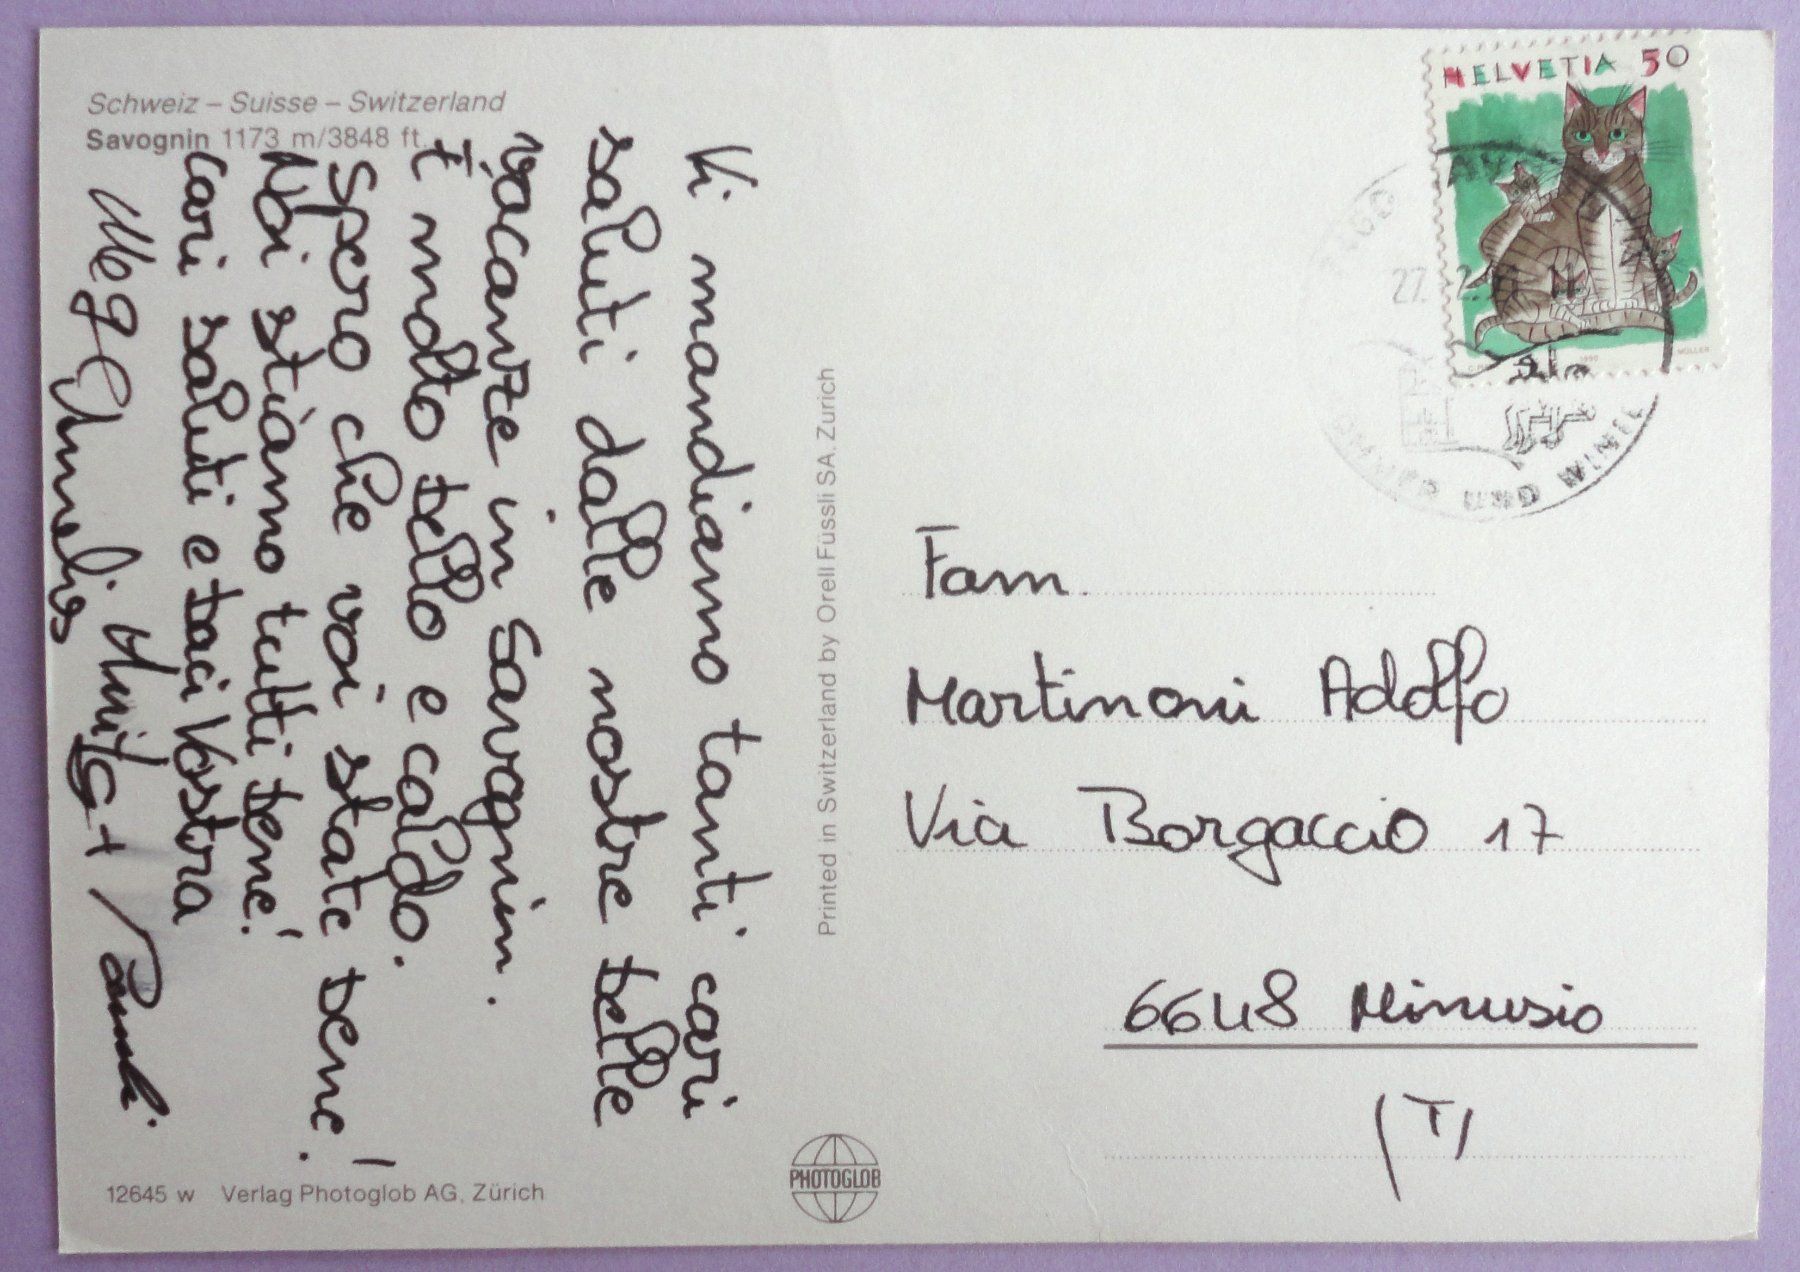 Schweiz – Suisse – Switzerland
Savognin 1173 m/3848 ft.
Vi mandiamo tanti cari
saluti dalle nostre belle
vacanze in Savognin.
È molto bello e caldo.
Spero che voi state bene!
Noi stiamo tutti bene!
Cari saluti e baci Vostra
12645 w Verlag Photoglob AG, Zürich
Printed in Switzerland by Orell Füssli SA. Zurich
PHOTOGLOB
HELVETIA 50
1990
MÜLLER
UND WINTER
Fam.
Martinoni Adolfo
Via Borgaccio 17
6648 Minusio
(TI